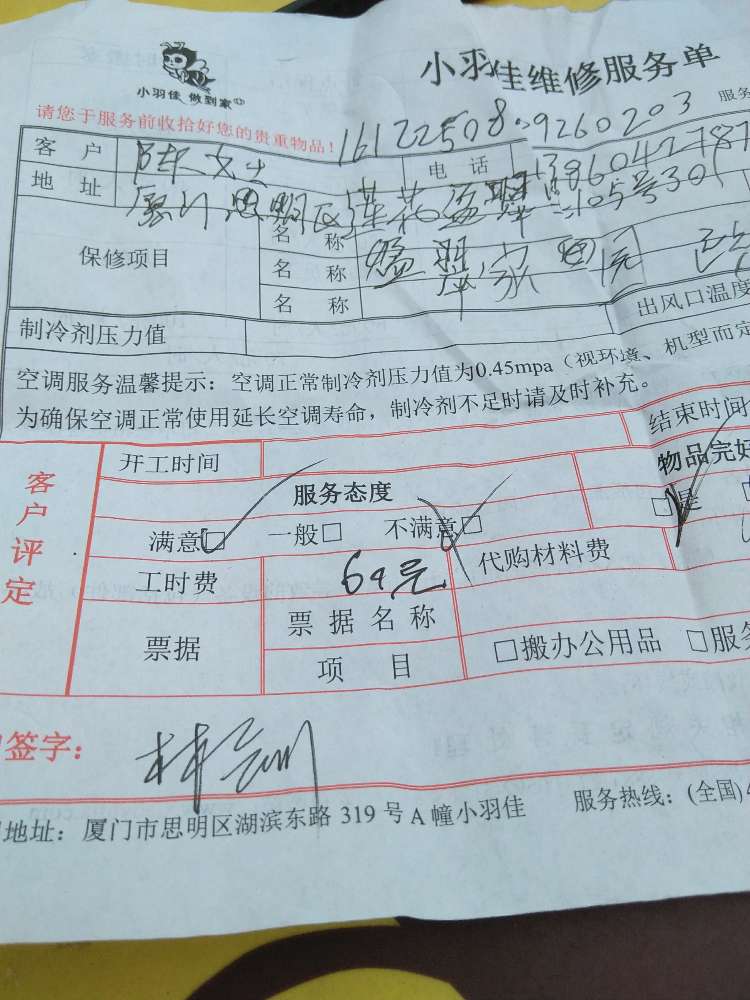 小羽佳维修服务单
小羽佳 做到家
服务
请您于服务前收拾好您的贵重物品！
161225089260203
客 户 陈女士 电 话 1386042787
地 址 厦门思明区莲花 105号301
保修项目
名 称
名 称
名 称
制冷剂压力值 出风口温度
空调服务温馨提示：空调正常制冷剂压力值为0.45mpa（视环境、机型而定
为确保空调正常使用延长空调寿命，制冷剂不足时请及时补充。
客户评定
开工时间 结束时间
服务态度 物品完好
满意□ 一般□ 不满意□ □是
工时费 69元 代购材料费
票据 票据名称
项 目 □搬办公用品 □服务
签字：
地址：厦门市思明区湖滨东路 319 号 A 幢小羽佳 服务热线：(全国)4